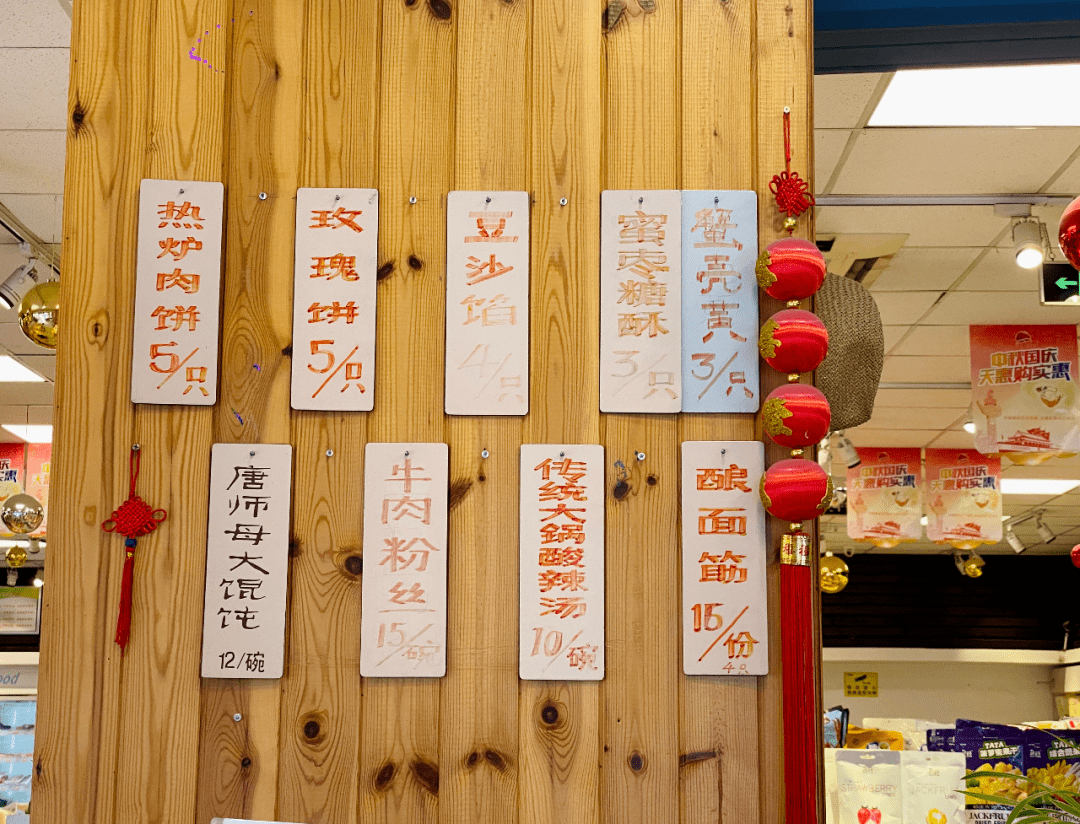 热炉肉饼
5/只
玫瑰饼
5/只
豆沙馅
4/只
蜜枣糖酥
3/只
蟹壳黄
3/只
唐师母大馄饨
12/碗
牛肉粉丝
15/碗
传统大锅酸辣汤
10/碗
酿面筋
16/份
4只
中秋国庆
天惠购实惠
中秋国庆
中秋国庆
TATA
STRAWBERRY
JACKFRUIT